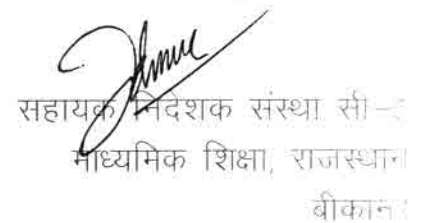 सहायक निदेशक संस्था सी-
माध्यमिक शिक्षा, राजस्थान
बीकानेर